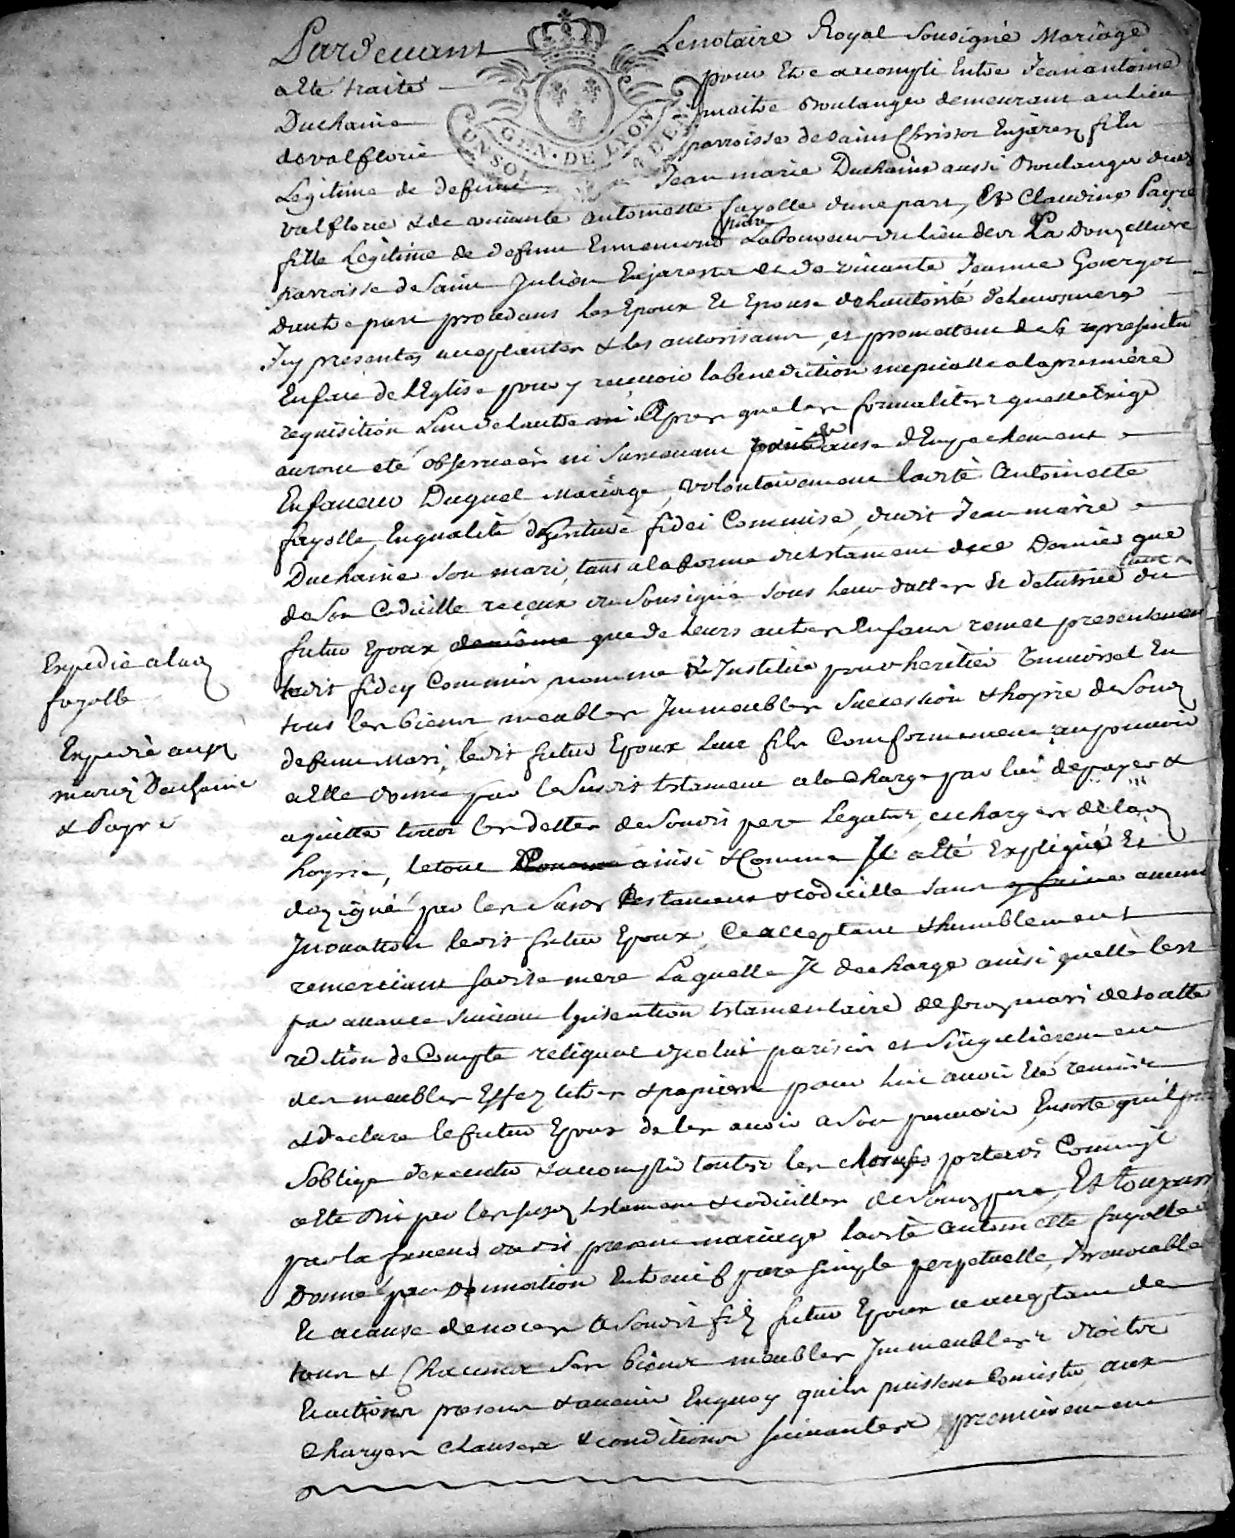 Pardevant Lenotaire Royal Sousigné Mariage
a Eté traité pour Etre acompli Entre Jean antoine
Duchaine maitre Boulanger demeurant au lieu
devalflorie parroisse de saint Christot Enjarez fils
Legitime de defunt Jean marie Duchaine aussi Boulanger dudt
valflorie & de vivante antoinette fayolle dune part, Et Claudine Payre
fille Legitime de defunt Ennemond Laboureur du lieu de La Donzelliere
parroisse de Saint Julien Enjarest et de vivante Jeanne Gourgot
Dautre part procedans les Epoux et Epouse de lautorité de leurs meres
Icy presentes acceptantes & les autorisant, et promettent de se representer
Enface de lEglise pour y recevoir la benediction nuptialle a la premiere
requisition Lun de lautre Apres que les formalités que
auront eté observées ni survenant cause dEmpechement
Enfaveur Duquel Mariage, volontairement ladite Antoinette
fayolle, Enqualité dheritiere fidei Commise, dudit Jean marie
Duchaine son mari, tant a la forme du testament de ce Dernier que
de Son Codicille reçeux du Sousigné sous leurs dattes Et
futur Epoux que de leurs autres Enfans remet presentement
ledit fidey Commis, nomme & Institue pour heritier Universel En
tous les bienes meubles Immeubles Succession & hoyrie de Son
defunt Mari, ledit futur Epoux leur fils Conformement au pouvoir
a Elle donné par le Susdit testament a la Charge par lui de payer &
aquitter tous les dettes de Soudit pere Legats, et charges de lad
hoyrie, le tout ainsi & Comme Il a Eté Expliqué Et
dezigné par les Susd testament & codicille sans aucune
Inovation ledit futur Epoux Ce acceptant & humblement
remerciant sadite mere Laquelle Il decharge ainsi quelle lest
par avance suivant lintention testamentaire de son mari de toutte
redition de Compte reliquat dicelui parisis et Singulierement
des meubles Effez titres & papiers pour lui avoir Eté remis
& declare le futur Epoux de les avoir a Son pouvoir, Ensorte quil
Soblige dexecuter & accomplir toutes les choses portées Comme Il
a Eté dit par les susd testament & codicilles de soud pere, Et toujours
par la faveur dudit present mariage ladite antoinette fayolle
Donne par Donnation Entrevifs pure simple perpetuelle, Irrevocable
Et a cause de noces a Soudit fils futur Epoux ce acceptant de
tous & Chacuns Ses bienes meubles Immeubles droits
Et actions presens & avenir Enquoy quils puissent Consister aux
Charges clauses & conditions suivantes premierement
Expedié a lad
fayolle
Expedié aux
mariez Duchaine
& Payre
GEN. DE LYON
UN SOL